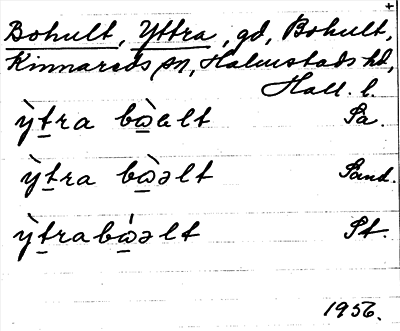 +
Bohult, Yttra, gd, Bohult,
Kinnareds sn, Halmstads hd,
Hall. l.
ỳt̲ra bὼ̲elt Sa.
ỳt̲ra bὼ̲əlt Sand.
ỳt̲rabώ̲əlt St.
1956.